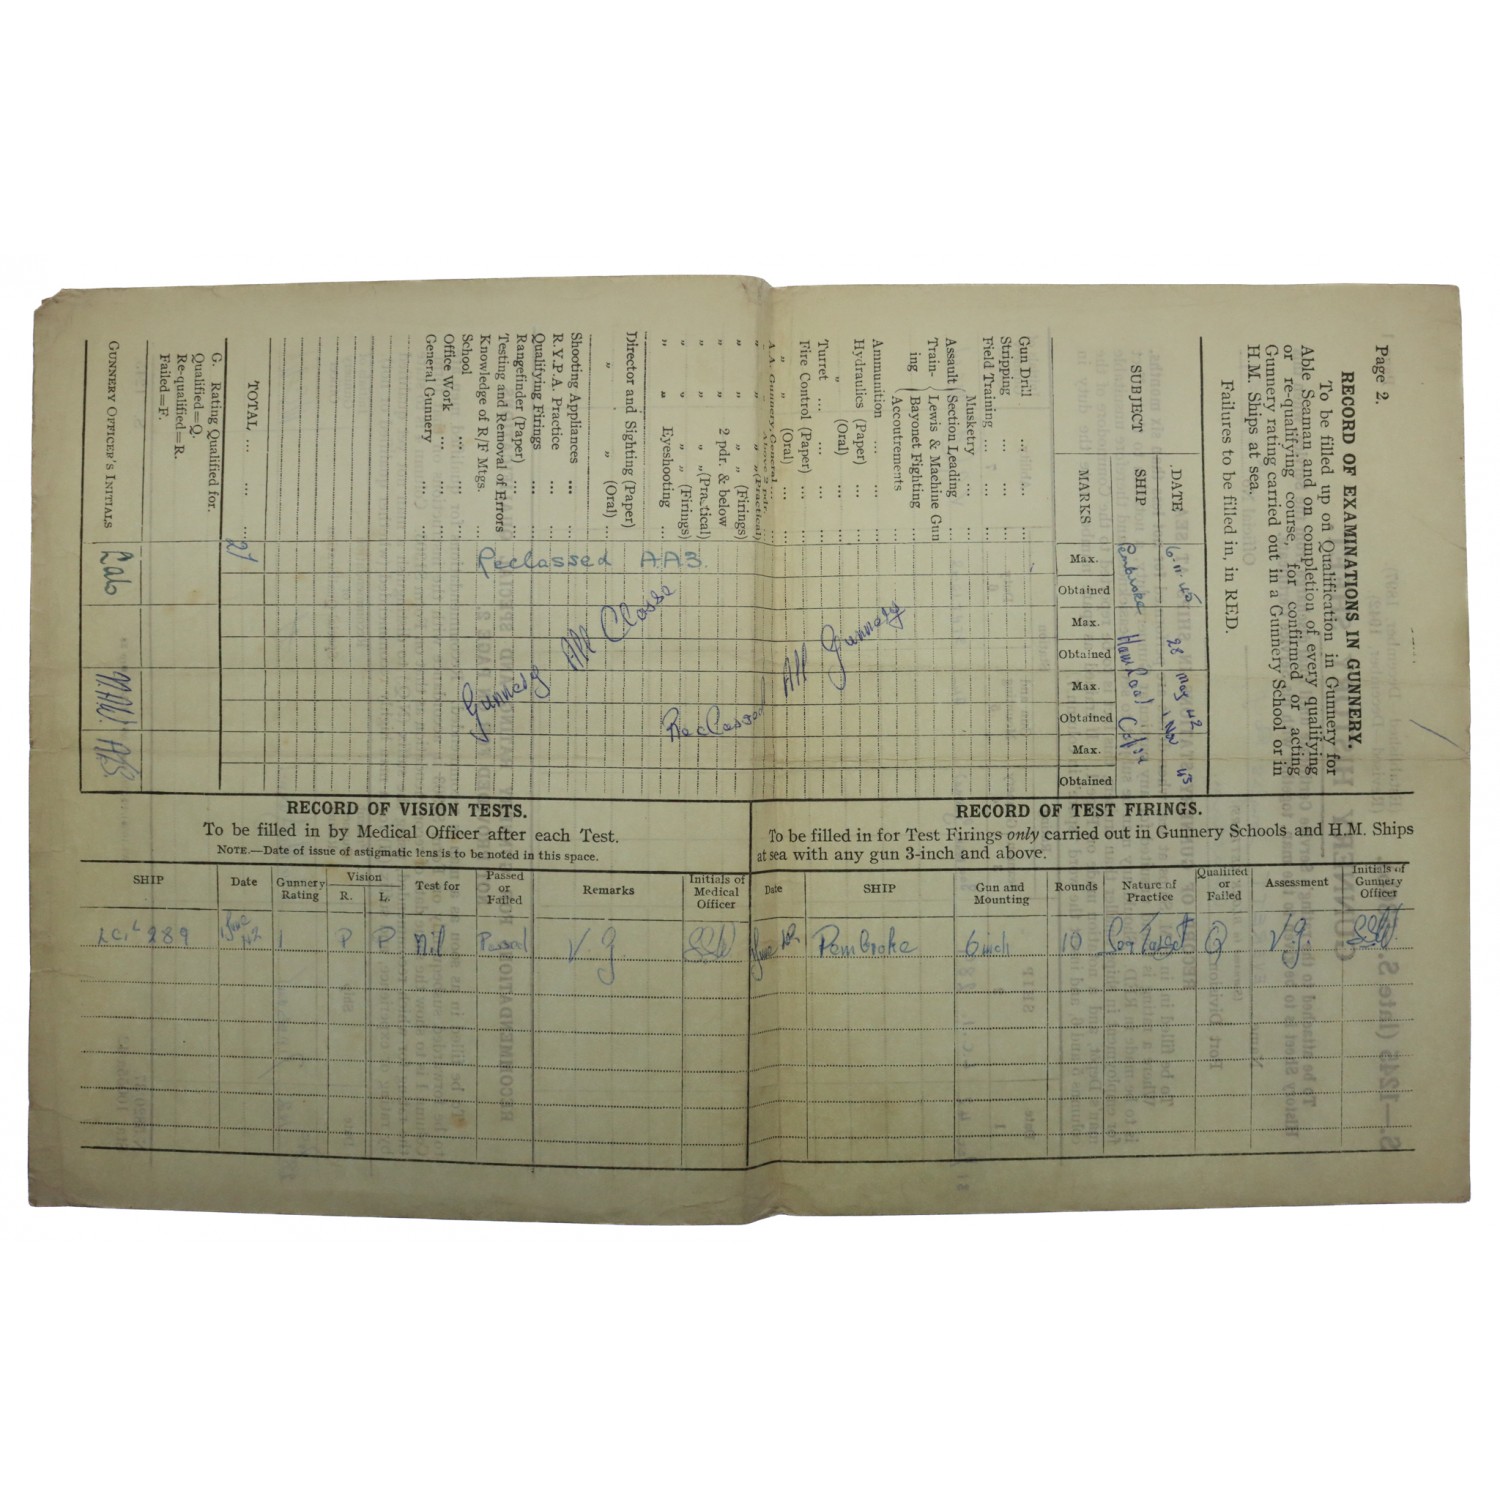 Page 2.
RECORD OF EXAMINATIONS IN GUNNERY.
To be filled up on Qualification in Gunnery for
Able Seaman and on completion of every qualifying
or re-qualifying course, for confirmed or acting
Gunnery rating carried out in a Gunnery School or in
H.M. Ships at sea.
Failures to be filled in, in RED.
DATE 6.11.40 28 May 42 1 Nov 43
SUBJECT SHIP Pembroke
MARKS Max. Obtained Max. Obtained Max. Obtained Max. Obtained
Gun Drill ... ...
Stripping ... ...
Field Training ... ...
Musketry ...
Assault Section Leading
Train- Lewis & Machine Gun
ing Bayonet Fighting ...
Accoutrements
Ammunition ... ...
Hydraulics (Paper) ...
„ (Oral) ...
Turret ... ... ...
Fire Control (Paper) ...
„ „ (Oral) ...
A.A. Gunnery, General ...
„ „ Above 2 pdr. „ (Practical)
„ „ „ (Firings)
„ „ 2 pdr. & below
„ „ „ (Practical)
„ „ „ (Firings)
„ „ Eyeshooting ...
Director and Sighting (Paper)
„ „ (Oral) ...
Shooting Appliances ...
R.Y.P.A. Practice ...
Qualifying Firings ...
Rangefinder (Paper) ...
Testing and Removal of Errors
Knowledge of R/F Mtgs. ...
School ... ... ...
Office Work ... ...
General Gunnery ... ...
Reclassed A.A.3.
Reclassed All Gunnery
Gunnery All Classe
TOTAL ... ... ...
G. Rating Qualified for.
Qualified=Q.
Re-qualified=R.
Failed=F.
GUNNERY OFFICER'S INITIALS
RECORD OF VISION TESTS.
To be filled in by Medical Officer after each Test.
NOTE.—Date of issue of astigmatic lens is to be noted in this space.
SHIP Date Gunnery Rating Vision R. L. Test for Passed or Failed Remarks Initials of Medical Officer
289 June 42 1 P P Nil Passed V.G.
RECORD OF TEST FIRINGS.
To be filled in for Test Firings only carried out in Gunnery Schools and H.M. Ships
at sea with any gun 3-inch and above.
Date SHIP Gun and Mounting Rounds Nature of Practice Qualified or Failed Assessment Initials of Gunnery Officer
June Pembroke 6 inch 10 Q V.G.